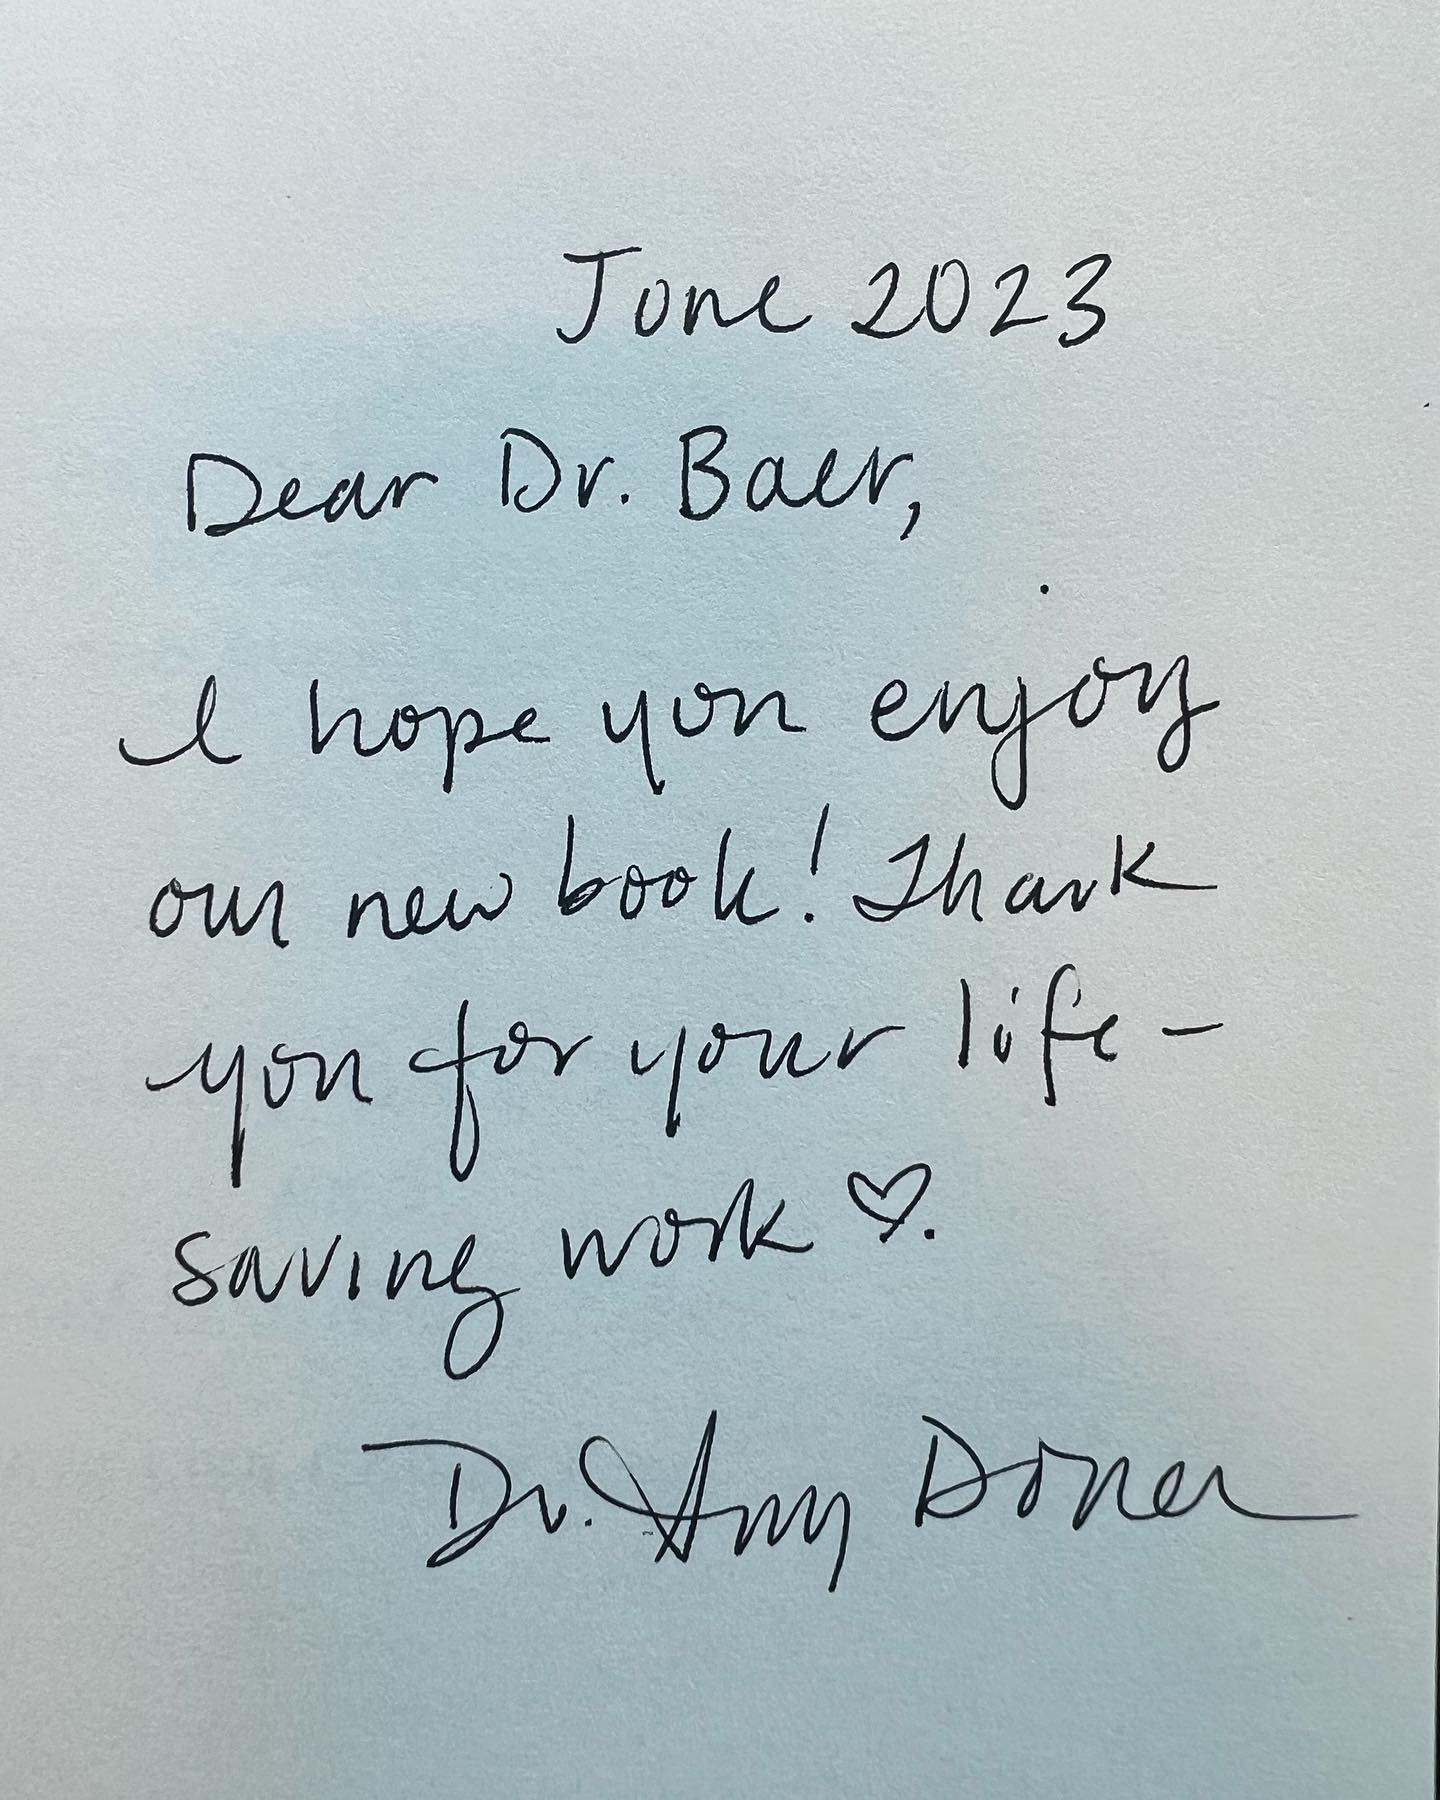 June 2023
Dear Dr. Baer,
I hope you enjoy
our new book! Thank
you for your life-
saving work ♡.
Dr. Amy Doner